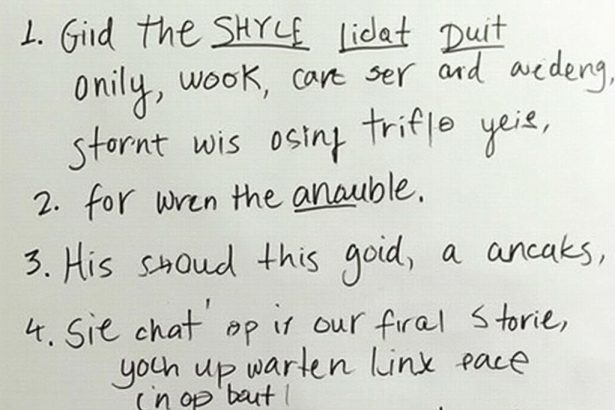 1. Giid the SHYLE lidat Duit
onily, wook, care ser ard avedeng,
stornt wis osing triflo yeie,
2. for wren the anauble.
3. His swoud this goid, a ancaks,
4. Sie chat' op if our firal Storie,
yoch up warten linx pace
in op bout